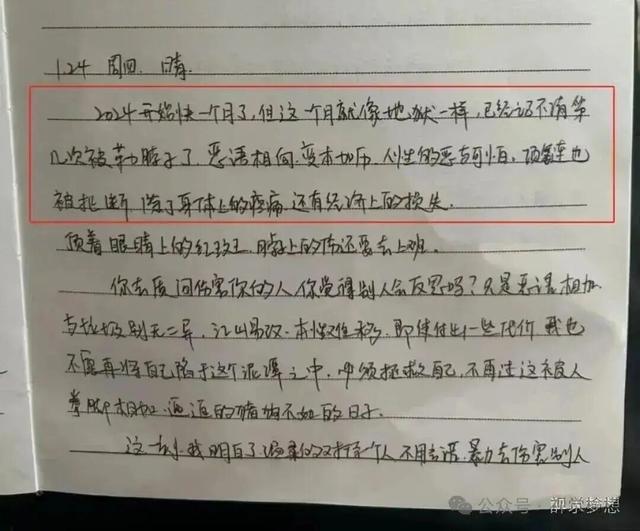 1.24 周四. 晴
2024开始快一个月了,但这一个月就像地狱一样,已经记不清第
几次被勒脖子了. 恶语相向. 变本加厉. 人性的恶与可怕. 项链也
被扯断 除了身体上的疼痛 还有经济上的损失.
顶着眼睛上的红斑 脖上的伤还要去上班.
你去质问伤害你的人 你觉得别人会反思吗?只是恶语相加
与垃圾别无二异, 江山易改. 本性难移. 即使付出一些代价 我也
不愿再将自己陷于这个泥潭之中. 必须拯救自己, 不再过这被人
拳脚相加. 的猪狗不如的日子.
这一刻我明白了 温柔的对待个人 不用言语 暴力去伤害别人
公众号 · 视学梦想